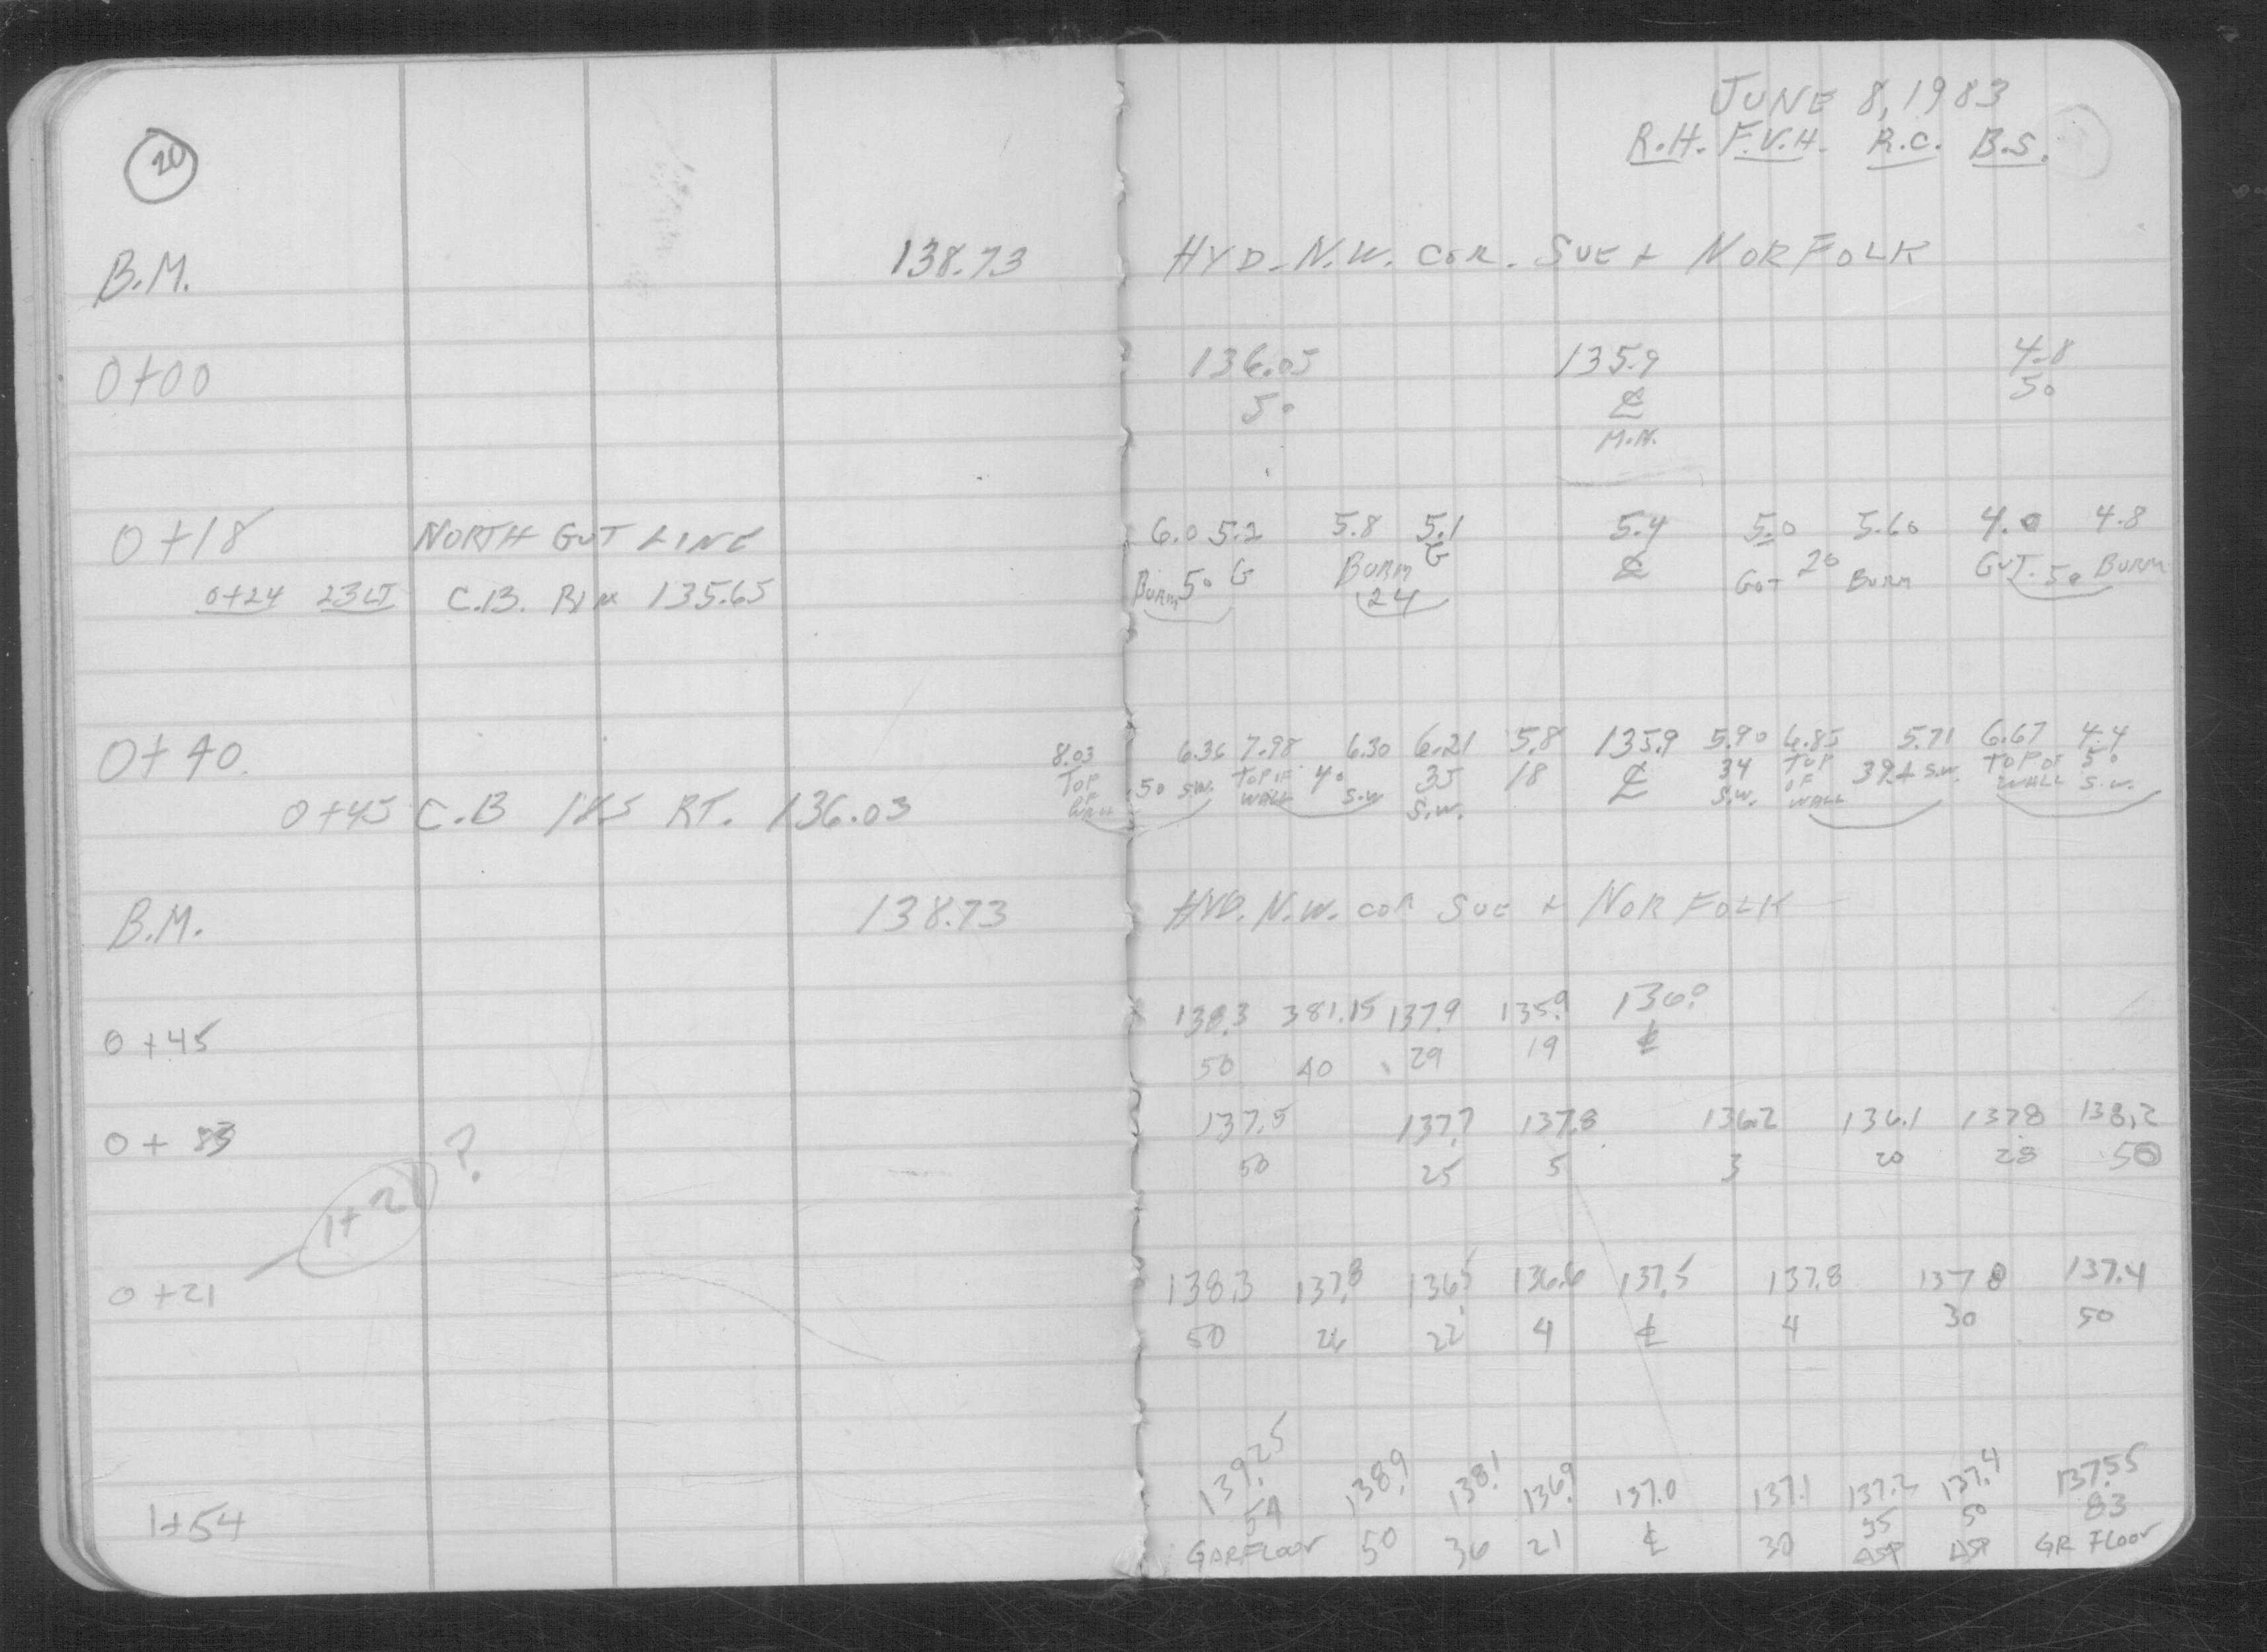 JUNE 8, 1983
20
R.H. F.V.H. R.C. B.S.
B.M. 138.73 HYD. N.W. COR. SUE + NORFOLK
0+00 136.05 135.9 4.8
50 ℄ 50
M.N.
0+18 NORTH GUT LINE 6.0 5.2 5.8 5.1 5.4 5.0 5.60 4.0 4.8
BURM 50 G BURM G ℄ GUT 20 BURM GUT. 50 BURM
0+24 23 LT C.B. RIM 135.65 24
0+40 8.03 6.36 7.98 6.30 6.21 5.8 135.9 5.90 6.85 5.71 6.67 4.4
TOP OF WALL 50 S.W. TOP OF WALL 40 S.W. 35 S.W. 18 ℄ 34 S.W. TOP OF WALL 39+ S.W. TOP OF WALL 50 S.W.
0+45 C.B 18.5 RT. 136.03
B.M. 138.73 HYD. N.W. COR SUE + NORFOLK
0+45 138.3 381.15 137.9 135.9 136.0
50 40 29 19 ℄
0+83 137.5 137.7 137.8 136.2 136.1 137.8 138.2
50 25 5 3 20 28 50
1+21 ?
0+21 138.3 137.8 136.5 136.6 137.5 137.8 137.8 137.4
50 26 22 4 ℄ 4 30 50
1+54 139.25 138.9 138.1 136.9 137.0 137.1 137.2 137.4 137.55
54 35 50 83
GAR Floor 50 36 21 ℄ 30 ASP ASP GR Floor